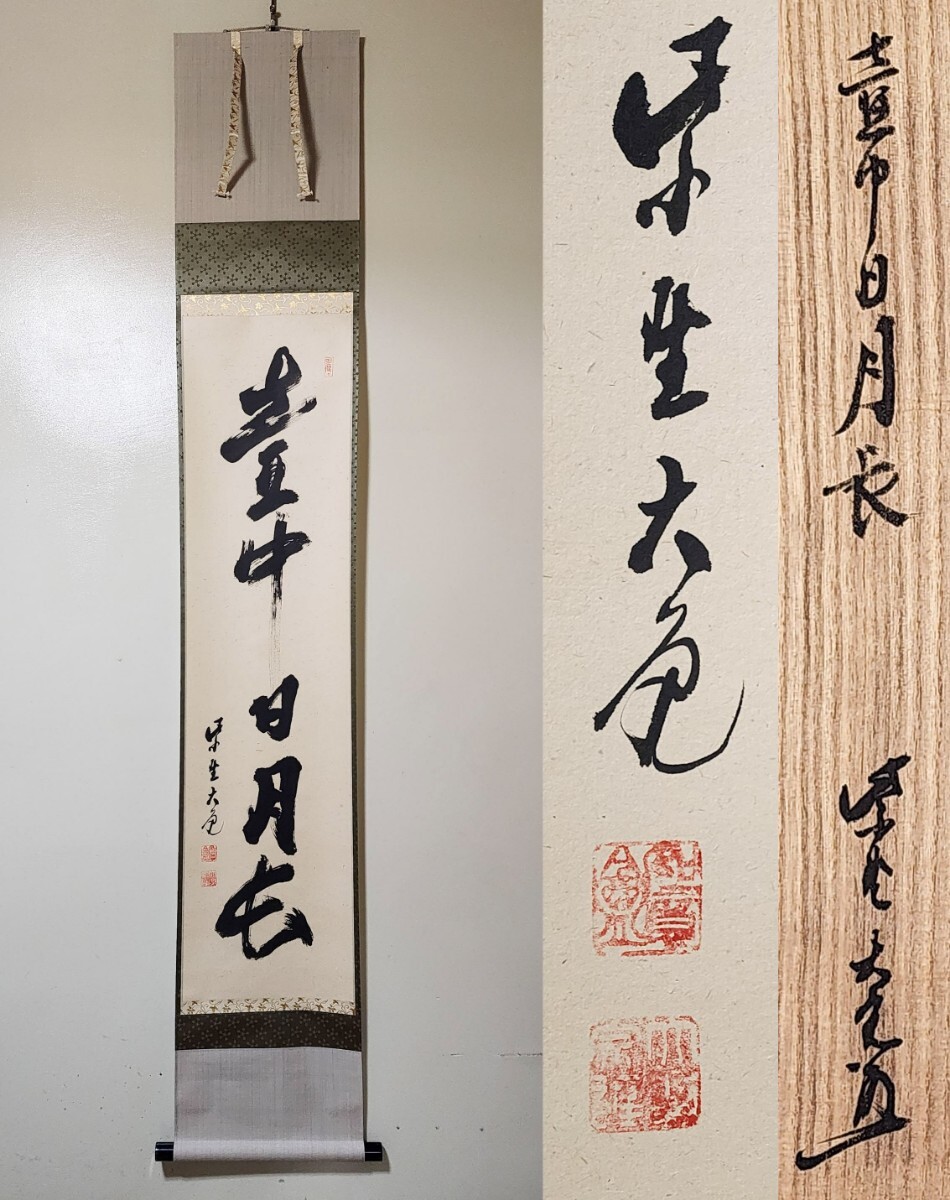 壺中日月長
紫野大亀
紫野大亀
壺中日月長
紫野大亀